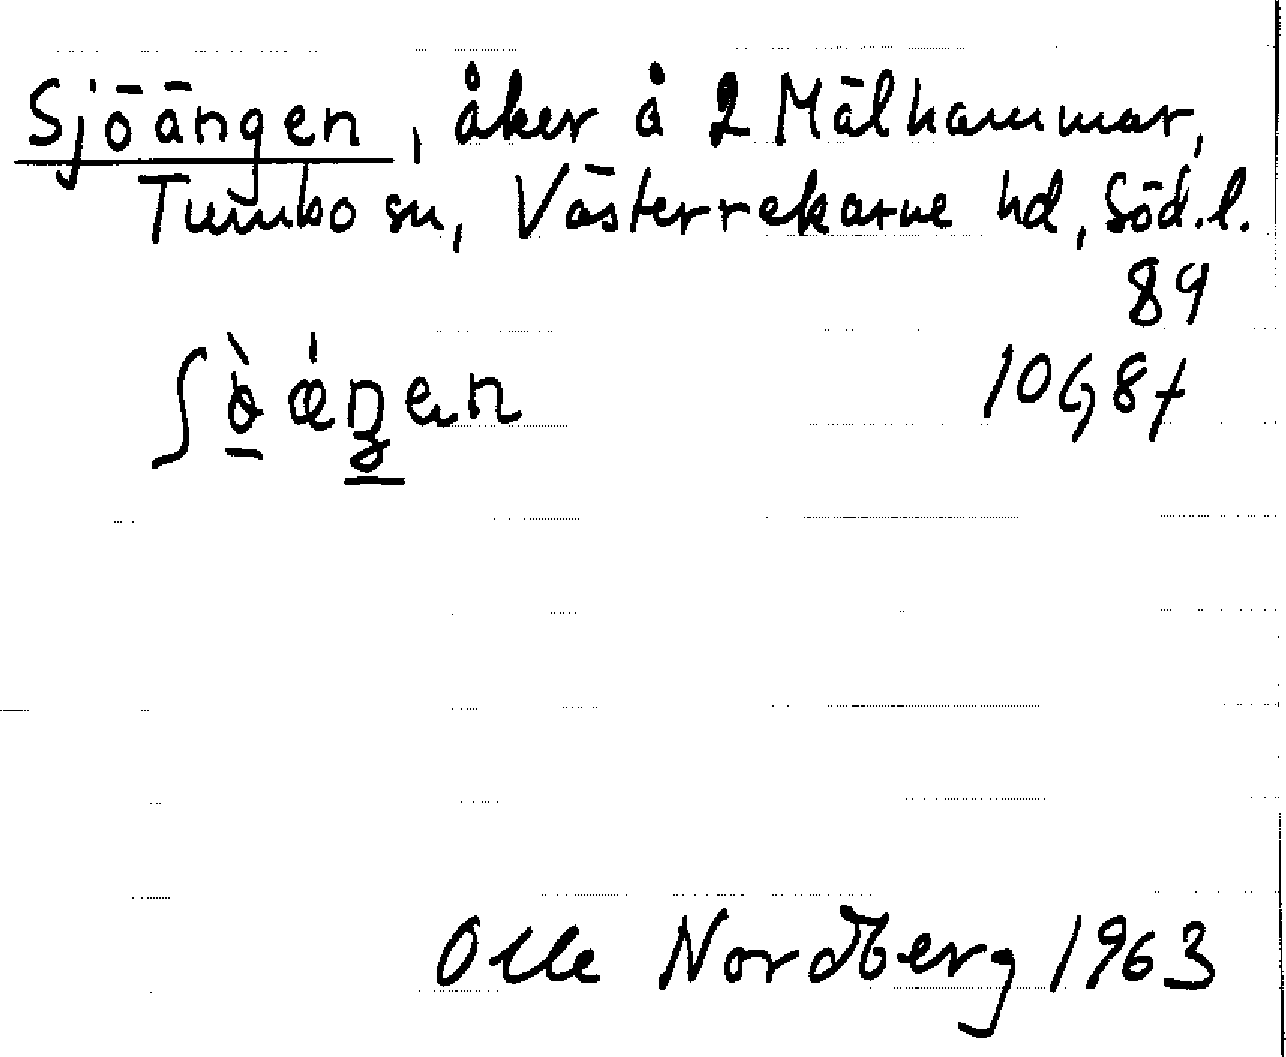 Sjöängen, åker å 2 Mälhammar,
Tumbo sn, Västerrekarne hd, Söd.l.
89
10G8f
Olle Nordberg 1963